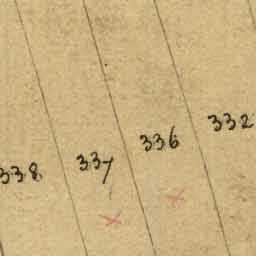 338 337 336 332